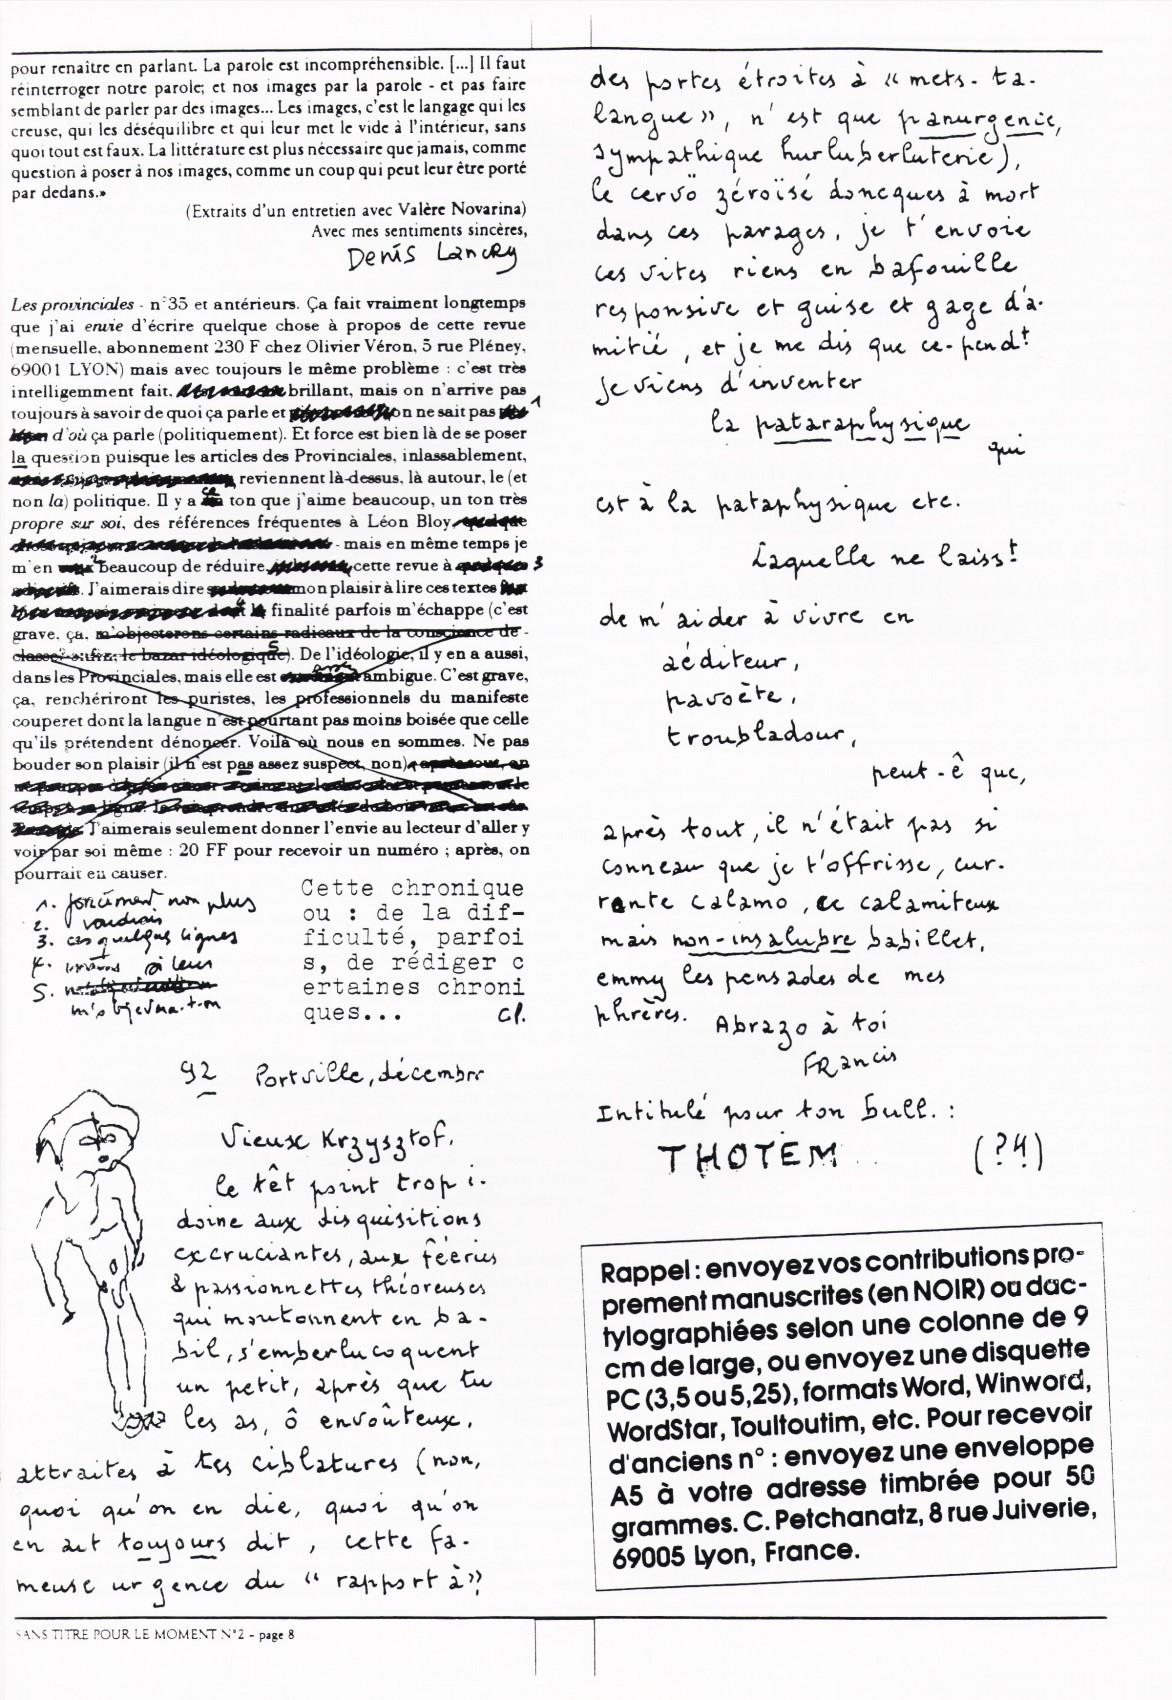 pour renaître en parlant. La parole est incompréhensible. [...] Il faut
réinterroger notre parole; et nos images par la parole - et pas faire
semblant de parler par des images... Les images, c'est le langage qui les
creuse, qui les déséquilibre et qui leur met le vide à l'intérieur, sans
quoi tout est faux. La littérature est plus nécessaire que jamais, comme
question à poser à nos images, comme un coup qui peut leur être porté
par dedans.»
(Extraits d'un entretien avec Valère Novarina)
Avec mes sentiments sincères,
Denis Lancry
Les provinciales - n°35 et antérieurs. Ça fait vraiment longtemps
que j'ai envie d'écrire quelque chose à propos de cette revue
(mensuelle, abonnement 230 F chez Olivier Véron, 5 rue Pléney,
69001 LYON) mais avec toujours le même problème : c'est très
intelligemment fait, brillant, mais on n'arrive pas
toujours à savoir de quoi ça parle et on ne sait pas 1
d'où ça parle (politiquement). Et force est bien là de se poser
la question puisque les articles des Provinciales, inlassablement,
reviennent là-dessus, là autour, le (et
non la) politique. Il y a ce ton que j'aime beaucoup, un ton très
propre sur soi, des références fréquentes à Léon Bloy
- mais en même temps je
m'en 2 beaucoup de réduire cette revue à 3
. J'aimerais dire mon plaisir à lire ces textes
dont 4 la finalité parfois m'échappe (c'est
grave, ça, m'objecterons certains radicaux de la conscience de
classe? enfin: le bazar idéologique 5). De l'idéologie, il y en a aussi,
dans les Provinciales, mais elle est assez ambigue. C'est grave,
ça, renchériront les puristes, les professionnels du manifeste
couperet dont la langue n'est pourtant pas moins boisée que celle
qu'ils prétendent dénoncer. Voilà où nous en sommes. Ne pas
bouder son plaisir (il n'est pas assez suspect, non)
J'aimerais seulement donner l'envie au lecteur d'aller y
voir par soi même : 20 FF pour recevoir un numéro ; après, on
pourrait en causer.
1. forcément non plus
2. voudrais
3. ces quelques lignes
4. à leur
5.
m'objectera-t-on
Cette chronique
ou : de la dif-
ficulté, parfoi
s, de rédiger c
ertaines chroni
ques... Cl.
92 Portville, décembre
Vieux Krzysztof,
le têt point trop i-
doine aux disquisitions
excruciantes, aux féeries
& passionnettes théoreuses
qui moutonnent en ba-
bil, s'emberlucoquent
un petit, après que tu
les as, ô envoûteux,
attraites à tes ciblatures (non,
quoi qu'on en die, quoi qu'on
en ait toujours dit, cette fa-
meuse urgence du « rapport à »
des portes étroites à « mets-ta-
langue», n'est que panurgenie,
sympathique hurluberluterie),
le cervö zéroïsé doncques à mort
dans ces parages, je t'envoie
ces vites riens en bafouille
responsive et guise et gage d'a-
mitié, et je me dis que ce-pendt
je viens d'inventer
la pataraphysique
qui
est à la pataphysique etc.
Laquelle ne laisst
de m'aider à vivre en
aéditeur,
pavoète,
troubladour,
peut-ê que,
après tout, il n'était pas si
conneau que je t'offrisse, cur-
rente calamo, ce calamiteux
mais non-insalubre babillet,
emmy les pensades de mes
phrères.
Abrazo à toi
FRancis
Intitulé pour ton bull. :
THOTEM (?4)
Rappel : envoyez vos contributions pro-
prement manuscrites (en NOIR) ou dac-
tylographiées selon une colonne de 9
cm de large, ou envoyez une disquette
PC (3,5 ou 5,25), formats Word, Winword,
WordStar, Toultoutim, etc. Pour recevoir
d'anciens n° : envoyez une enveloppe
A5 à votre adresse timbrée pour 50
grammes. C. Petchanatz, 8 rue Juiverie,
69005 Lyon, France.
SANS TITRE POUR LE MOMENT N°2 - page 8